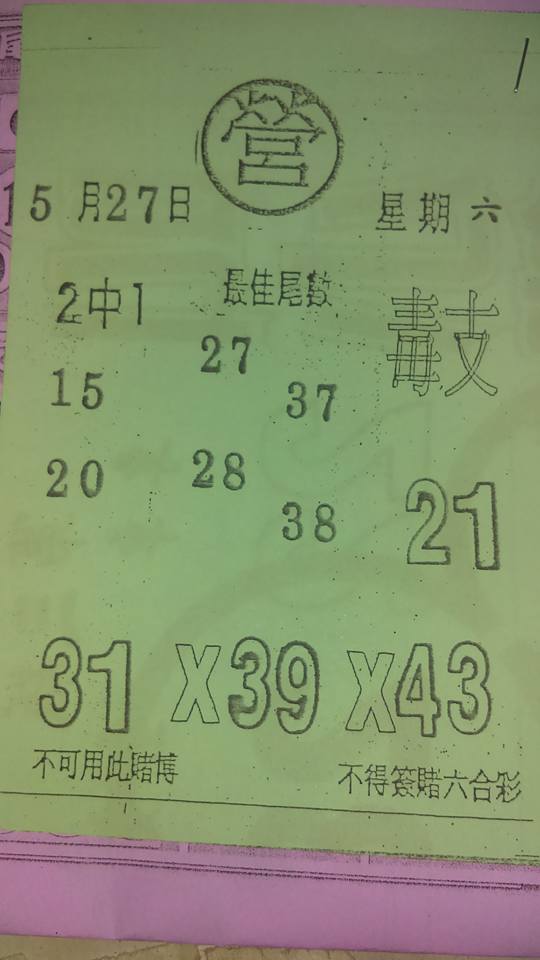 營
5月27日 星期六
2中1 最佳尾數 毒支
27
15 37
20 28
38 21
31 X 39 X 43
不可用此賭博 不得簽賭六合彩